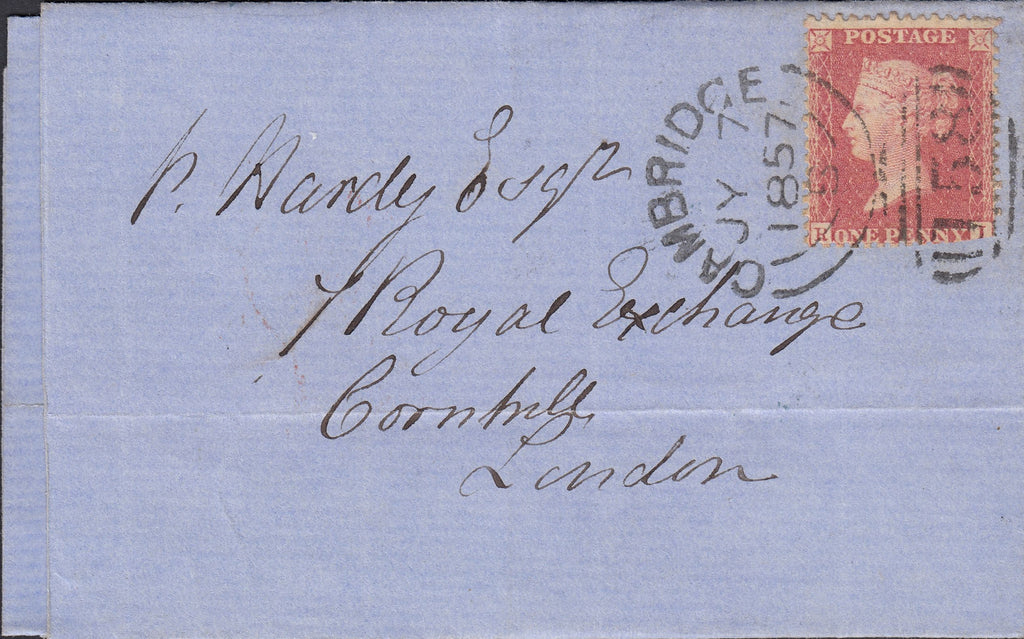 POSTAGE
ONE PENNY
CAMBRIDGE
JY 7
1857
158
P. Hardy Esqr
7 Royal Exchange
Cornhill
London